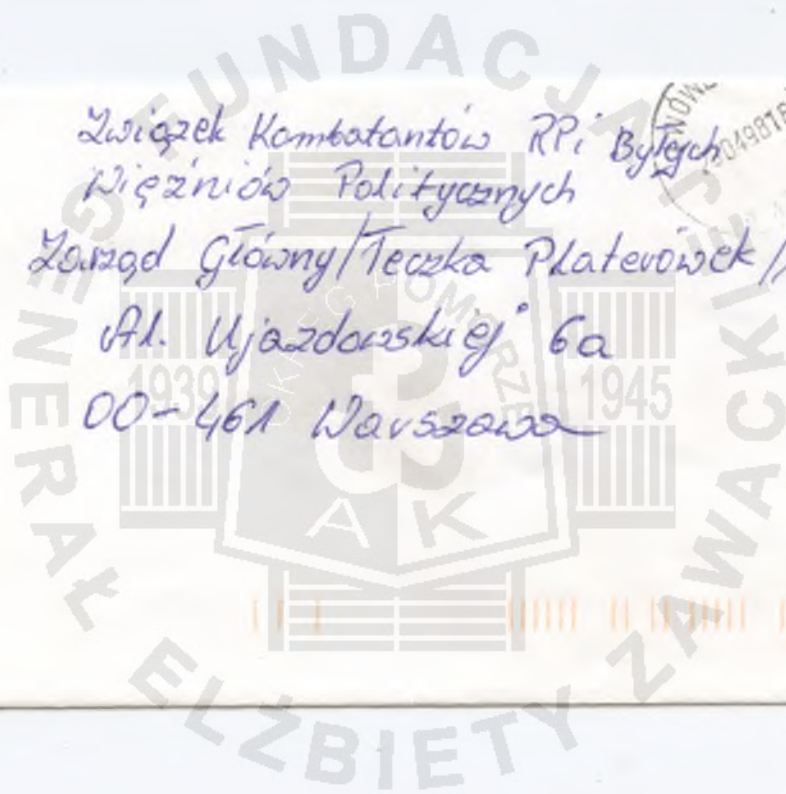 Związek Kombatantów RP i Byłych
Więźniów Politycznych
Zarząd Główny/Teczka Platerówek/
Al. Ujazdowskiej 6a
00-461 Warszawa
FUNDACJA GENERAŁ ELŻBIETY ZAWACKIEJ
OKRĘG POMORZE
1939
1945
AK